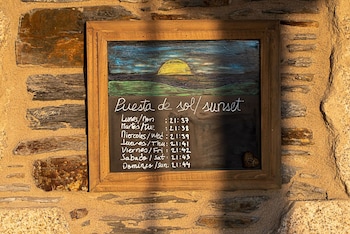 Puesta de sol/sunset
Lunes/Mon : 21:37
Martes/Tue : 21:38
Miercoles/Wed : 21:39
Jueves/Thu : 21:41
Viernes/Fri : 21:42
Sabado/Sat : 21:43
Domingo/Sun : 21:44